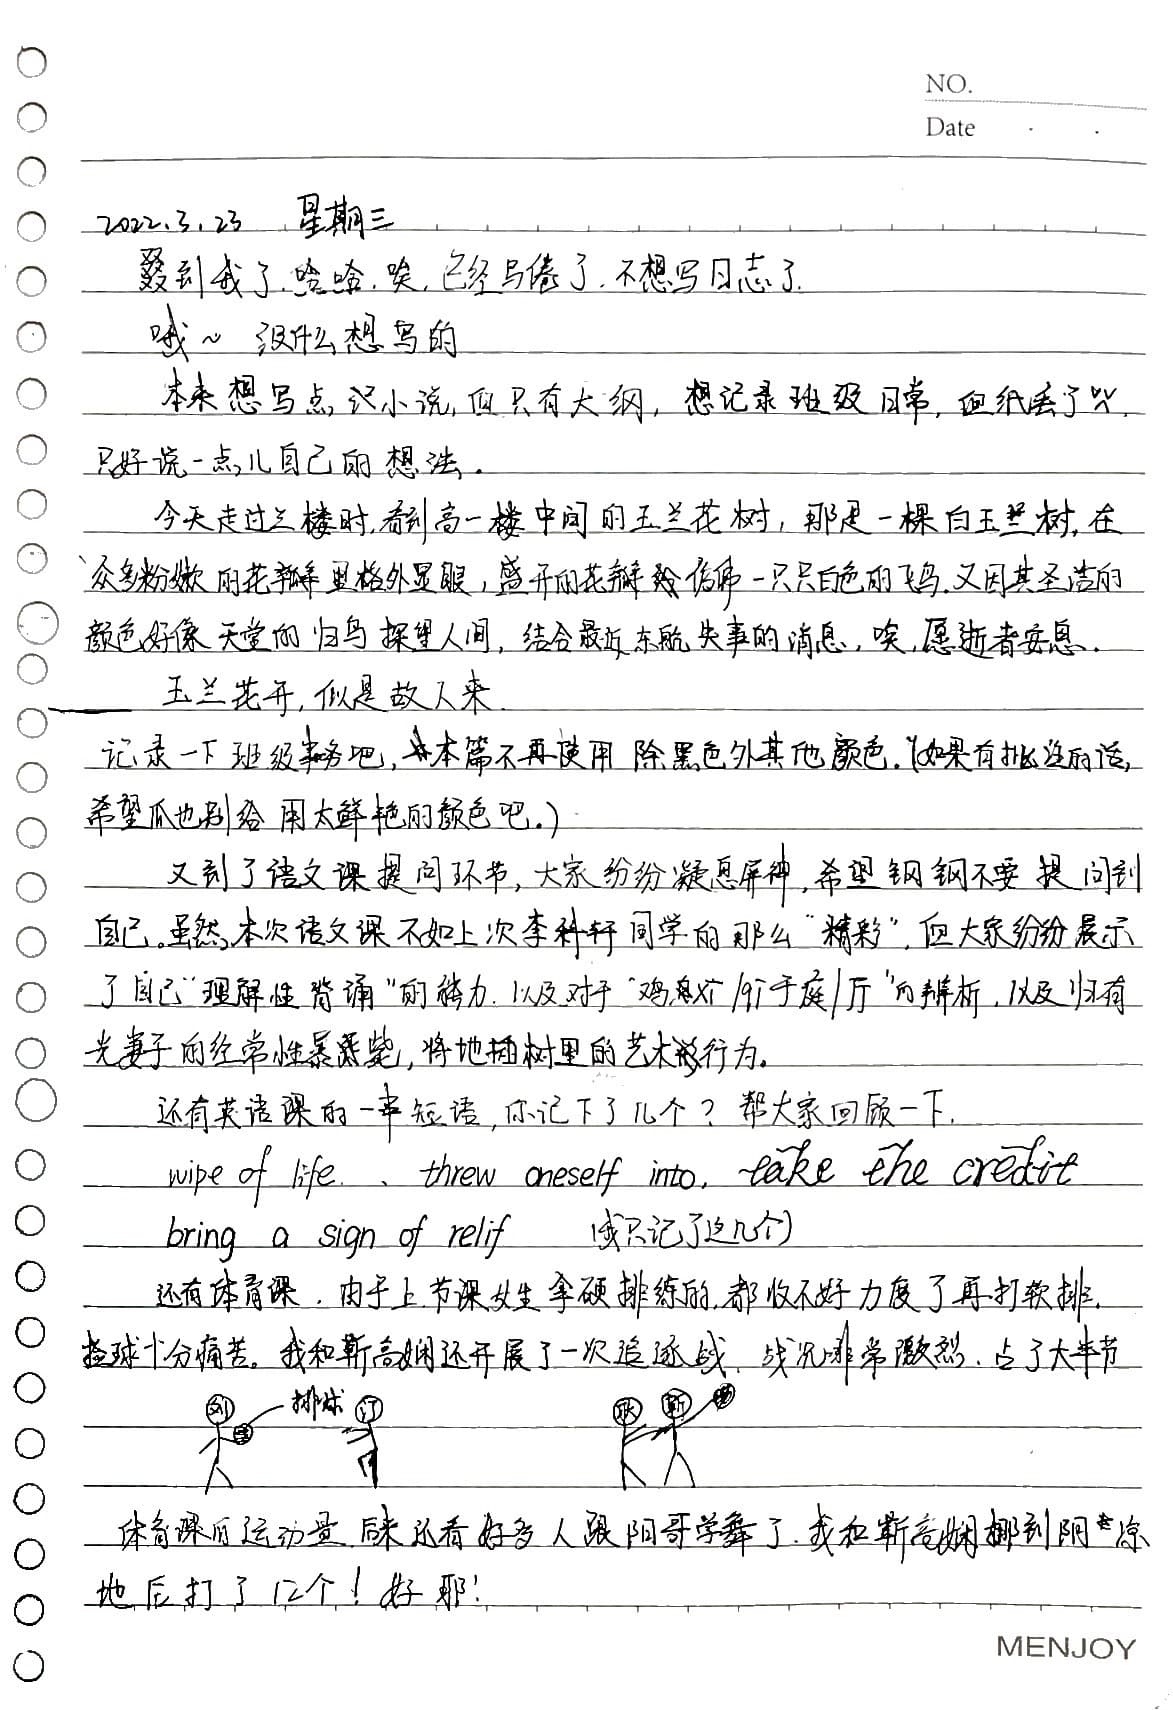 NO.
Date
2022.3.23 星期三
叕到我了.哈哈.唉.已经写倦了.不想写日志了.
哦~ 没什么想写的
本来想写点沉小说,但只有大纲,想记录班级日常,但纸丢了
只好说一点儿自己的想法.
今天走过三楼时,看到高一楼中间的玉兰花树,那是一棵白玉兰树,在
众多粉嫩的花瓣里格外显眼,盛开的花瓣 仿佛一只只白色的飞鸟.又因其圣洁的
颜色,好像天堂的归鸟探望人间,结合最近东航失事的消息,唉,愿逝者安息.
玉兰花开,似是故人来.
记录一下班级事务吧,本篇不再使用除黑色外其他颜色.(如果有批注的话,
希望爪也别给用太鲜艳的颜色吧.)
又到了语文课提问环节,大家纷纷凝息屏神,希望钢钢不要提问到
自己.虽然,本次语文课不如上次李科轩同学的那么"精彩",但大家纷纷展示
了自己"理解性背诵"的能力.以及对于"鸡 于庭/厅"的辨析,以及归有
光妻子的经常性暴 ,将地插树里的艺术行为.
还有英语课的一串短语,你记下了几个?帮大家回顾一下.
wipe of life. 、 threw oneself into, take the credit
bring a sign of relif (我只记了这几个)
还有体育课.由于上节课女生拿硬排练的,都收不好力度了再打软排.
垫球十分痛苦.我和靳高娴还开展了一次追逐战,战况非常激烈,占了大半节
刘 排球 订 耿 靳
体育课的运动量.后来还看好多人跟阳哥学舞了.我和靳高娴挪到阴凉
地后打了12个!好耶!
MENJOY